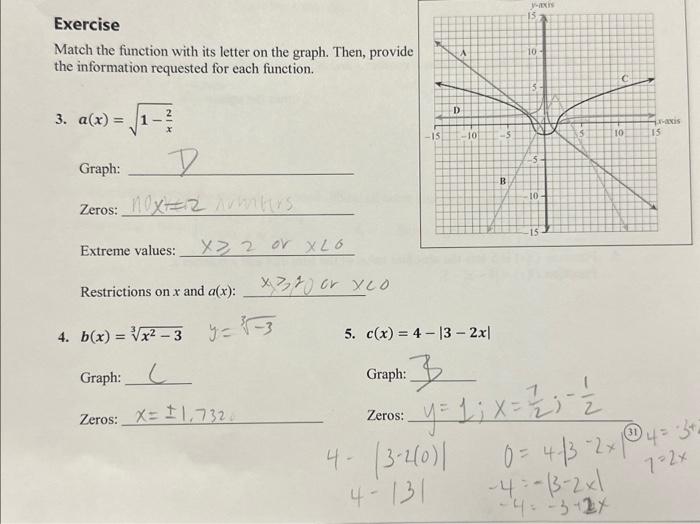 Exercise
Match the function with its letter on the graph. Then, provide
the information requested for each function.
3. a(x) = √(1 − 2/x)
Graph: D
Zeros:
Extreme values: x ≥ 2 or x<0
Restrictions on x and a(x): or x<0
4. b(x) = ∛(x² − 3) y = ∛-3
Graph: C
Zeros: x = ±1.732
5. c(x) = 4 − |3 − 2x|
Graph: B
Zeros: y = 1; x = 7/2; -1/2
4 - |3-2(0)|
4 - |3|
0 = 4-|3-2x|
-4 = -|3-2x|
-4 = -3+2x
31
7=2x
y-axis
15
10
5
A
C
D
B
x-axis
-15 -10 -5 5 10 15
-5
-10
-15